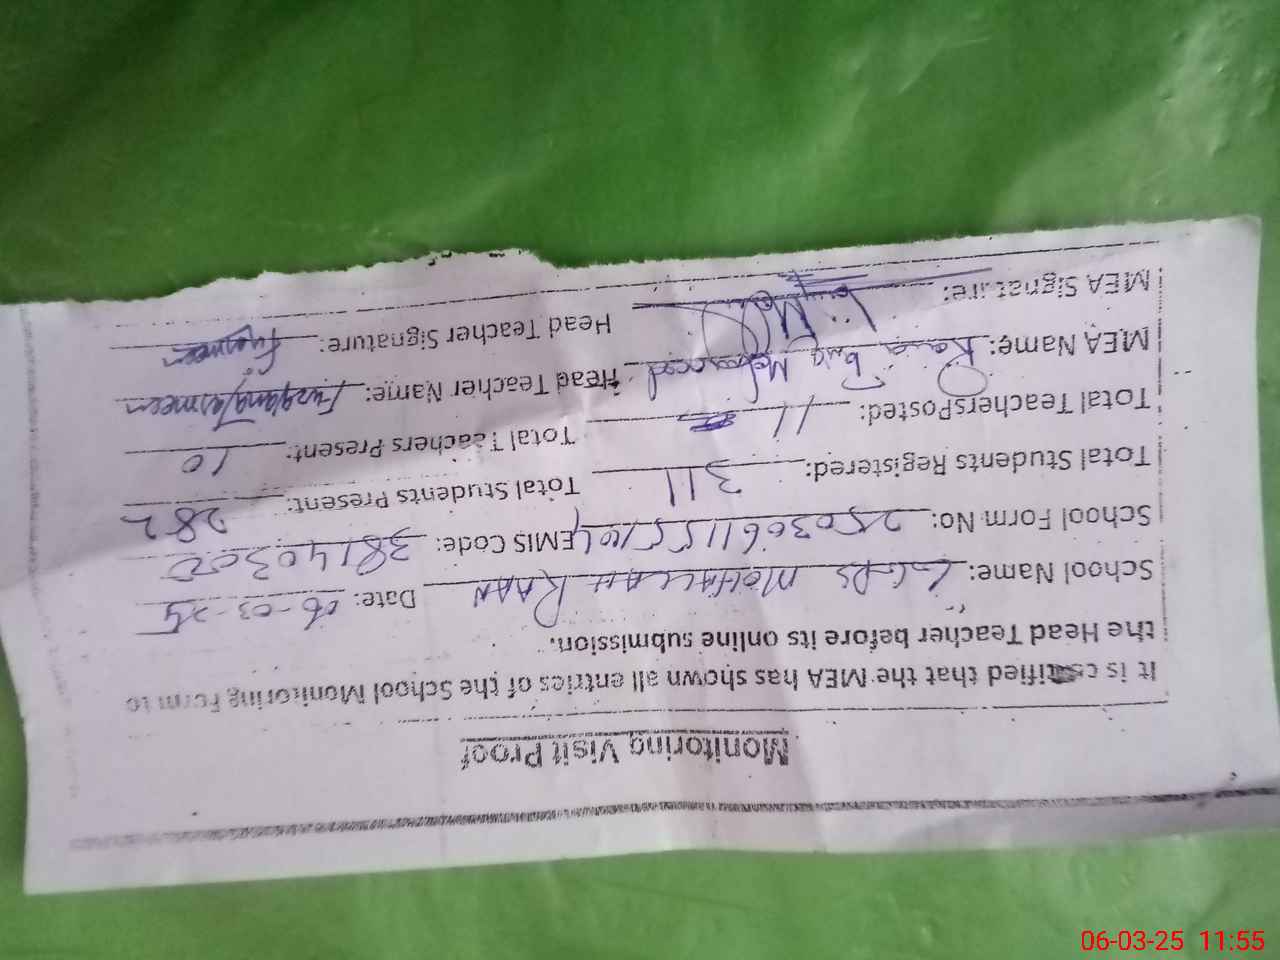 Monitoring Visit Proof
It is certified that the MEA has shown all entries of the School Monitoring Form to
the Head Teacher before its online submission.
School Name: GGPS MOHALLAH RAAN Date: 06-03-25
School Form No: EMIS Code: 38140300
Total Students Registered: 311 Total Students Present: 282
Total Teachers Posted: 11 Total Teachers Present: 10
MEA Name: Head Teacher Name: Furqana Yasmeen
MEA Signature: Head Teacher Signature:
06-03-25 11:55